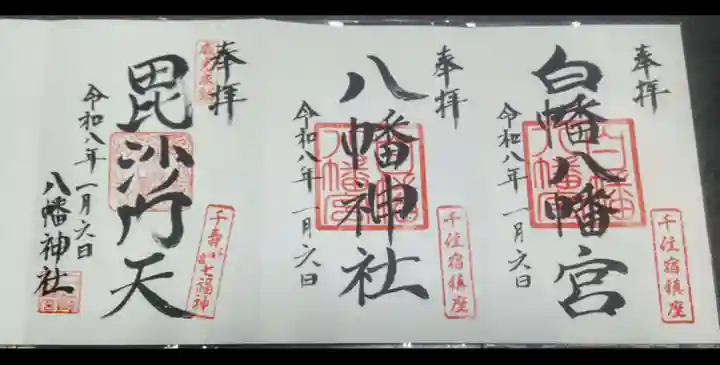 奉拝
白幡八幡宮
白幡八幡宮
令和八年 一月六日
千住宿鎮座
奉拝
八幡神社
令和八年 一月六日
千住宿鎮座
奉拝
毘沙門天
千寿七福神
令和八年 一月六日
八幡神社